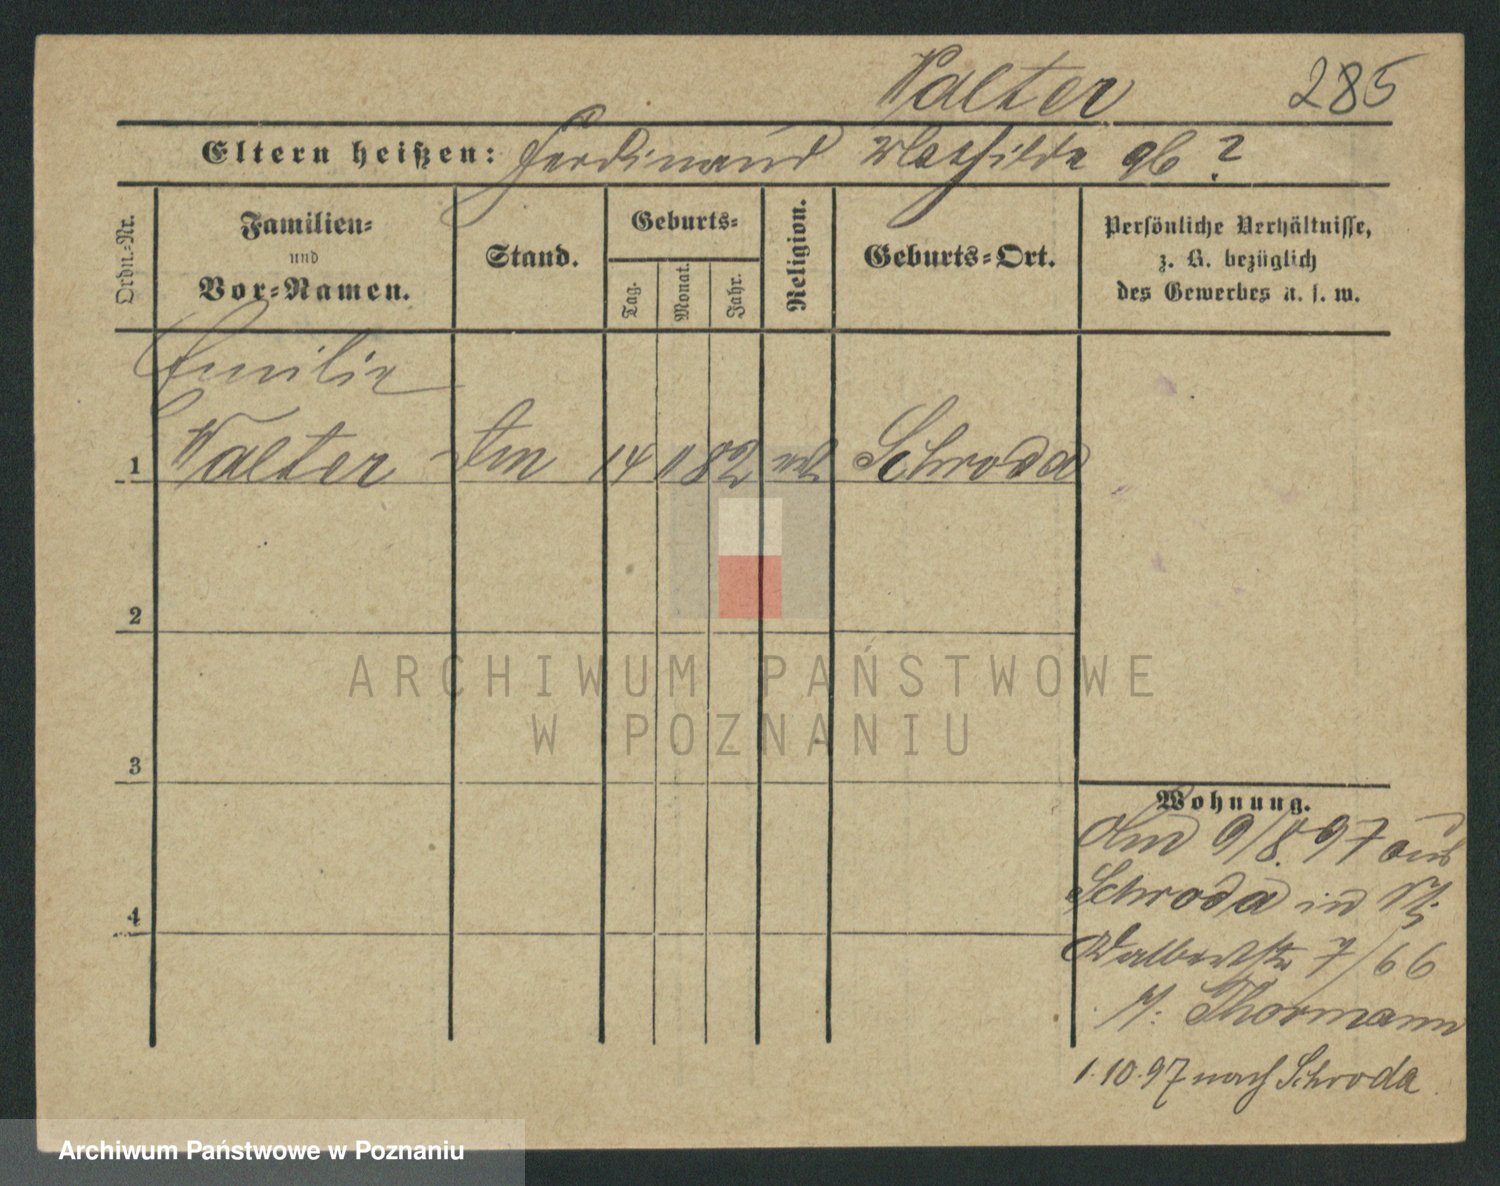 Walter 285
Eltern heißen: Ferdinand Mathilde gb ?
Ordn.-Nr.
Familien-
und
Vor-Namen.
Stand.
Geburts-
Tag.
Monat.
Jahr.
Religion.
Geburts-Ort.
Persönliche Verhältnisse,
z. B. bezüglich
des Gewerbes u. s. w.
Emilie
1 Walter 14 11 82 Schroda
2
3
4
ARCHIWUM PAŃSTWOWE
W POZNANIU
Wohnung.
9/8.97 aus
Schroda in
7/66
Thormann
1.10.97 nach Schroda
Archiwum Państwowe w Poznaniu